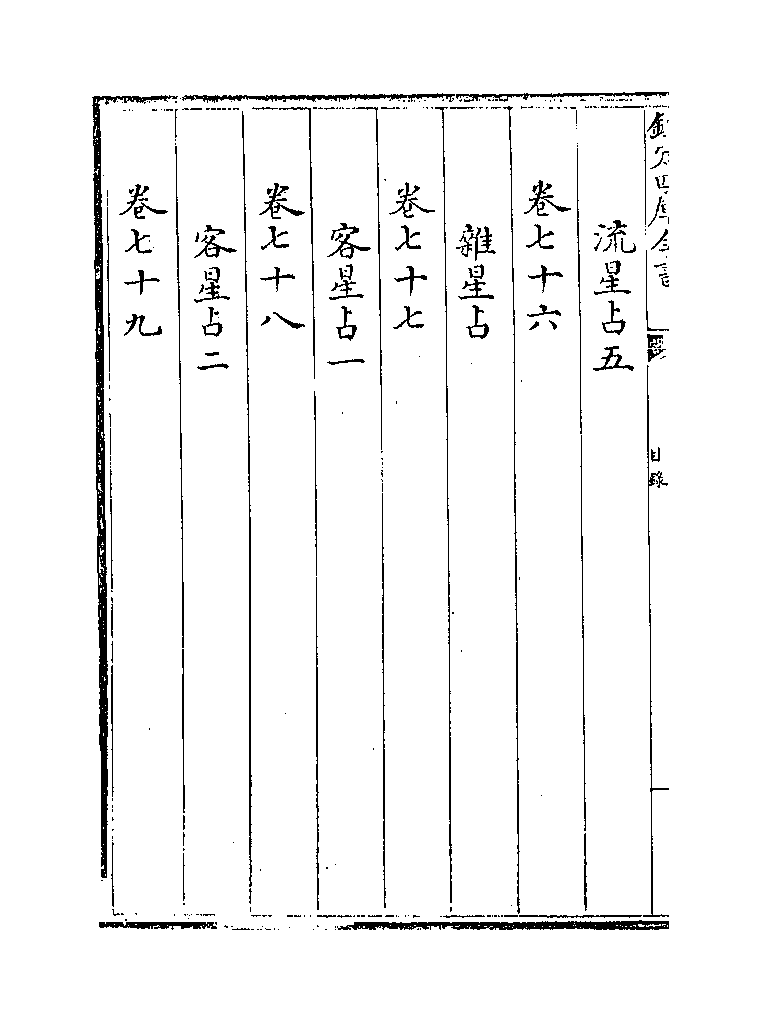 欽定四庫全書
目錄
流星占五
卷七十六
雜星占
卷七十七
客星占一
卷七十八
客星占二
卷七十九